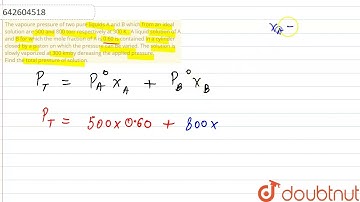 642604518
The vapoure pressure of two pure liquids A and B which from an ideal
solution are 500 and 800 torr respectively at 300 K . A liquid solution of A
and B for which the mole fraction of A is 0.60 is contained in a cylinder
closed by a piston on which the pressure can be varied. The solution is
slowly vaporised at 300 K by decreasing the applied pressure.
Find the total pressure of solution.
x_A =
P_T = P_A° x_A + P_B° x_B
P_T = 500 x 0.60 + 800 x
doubtnut